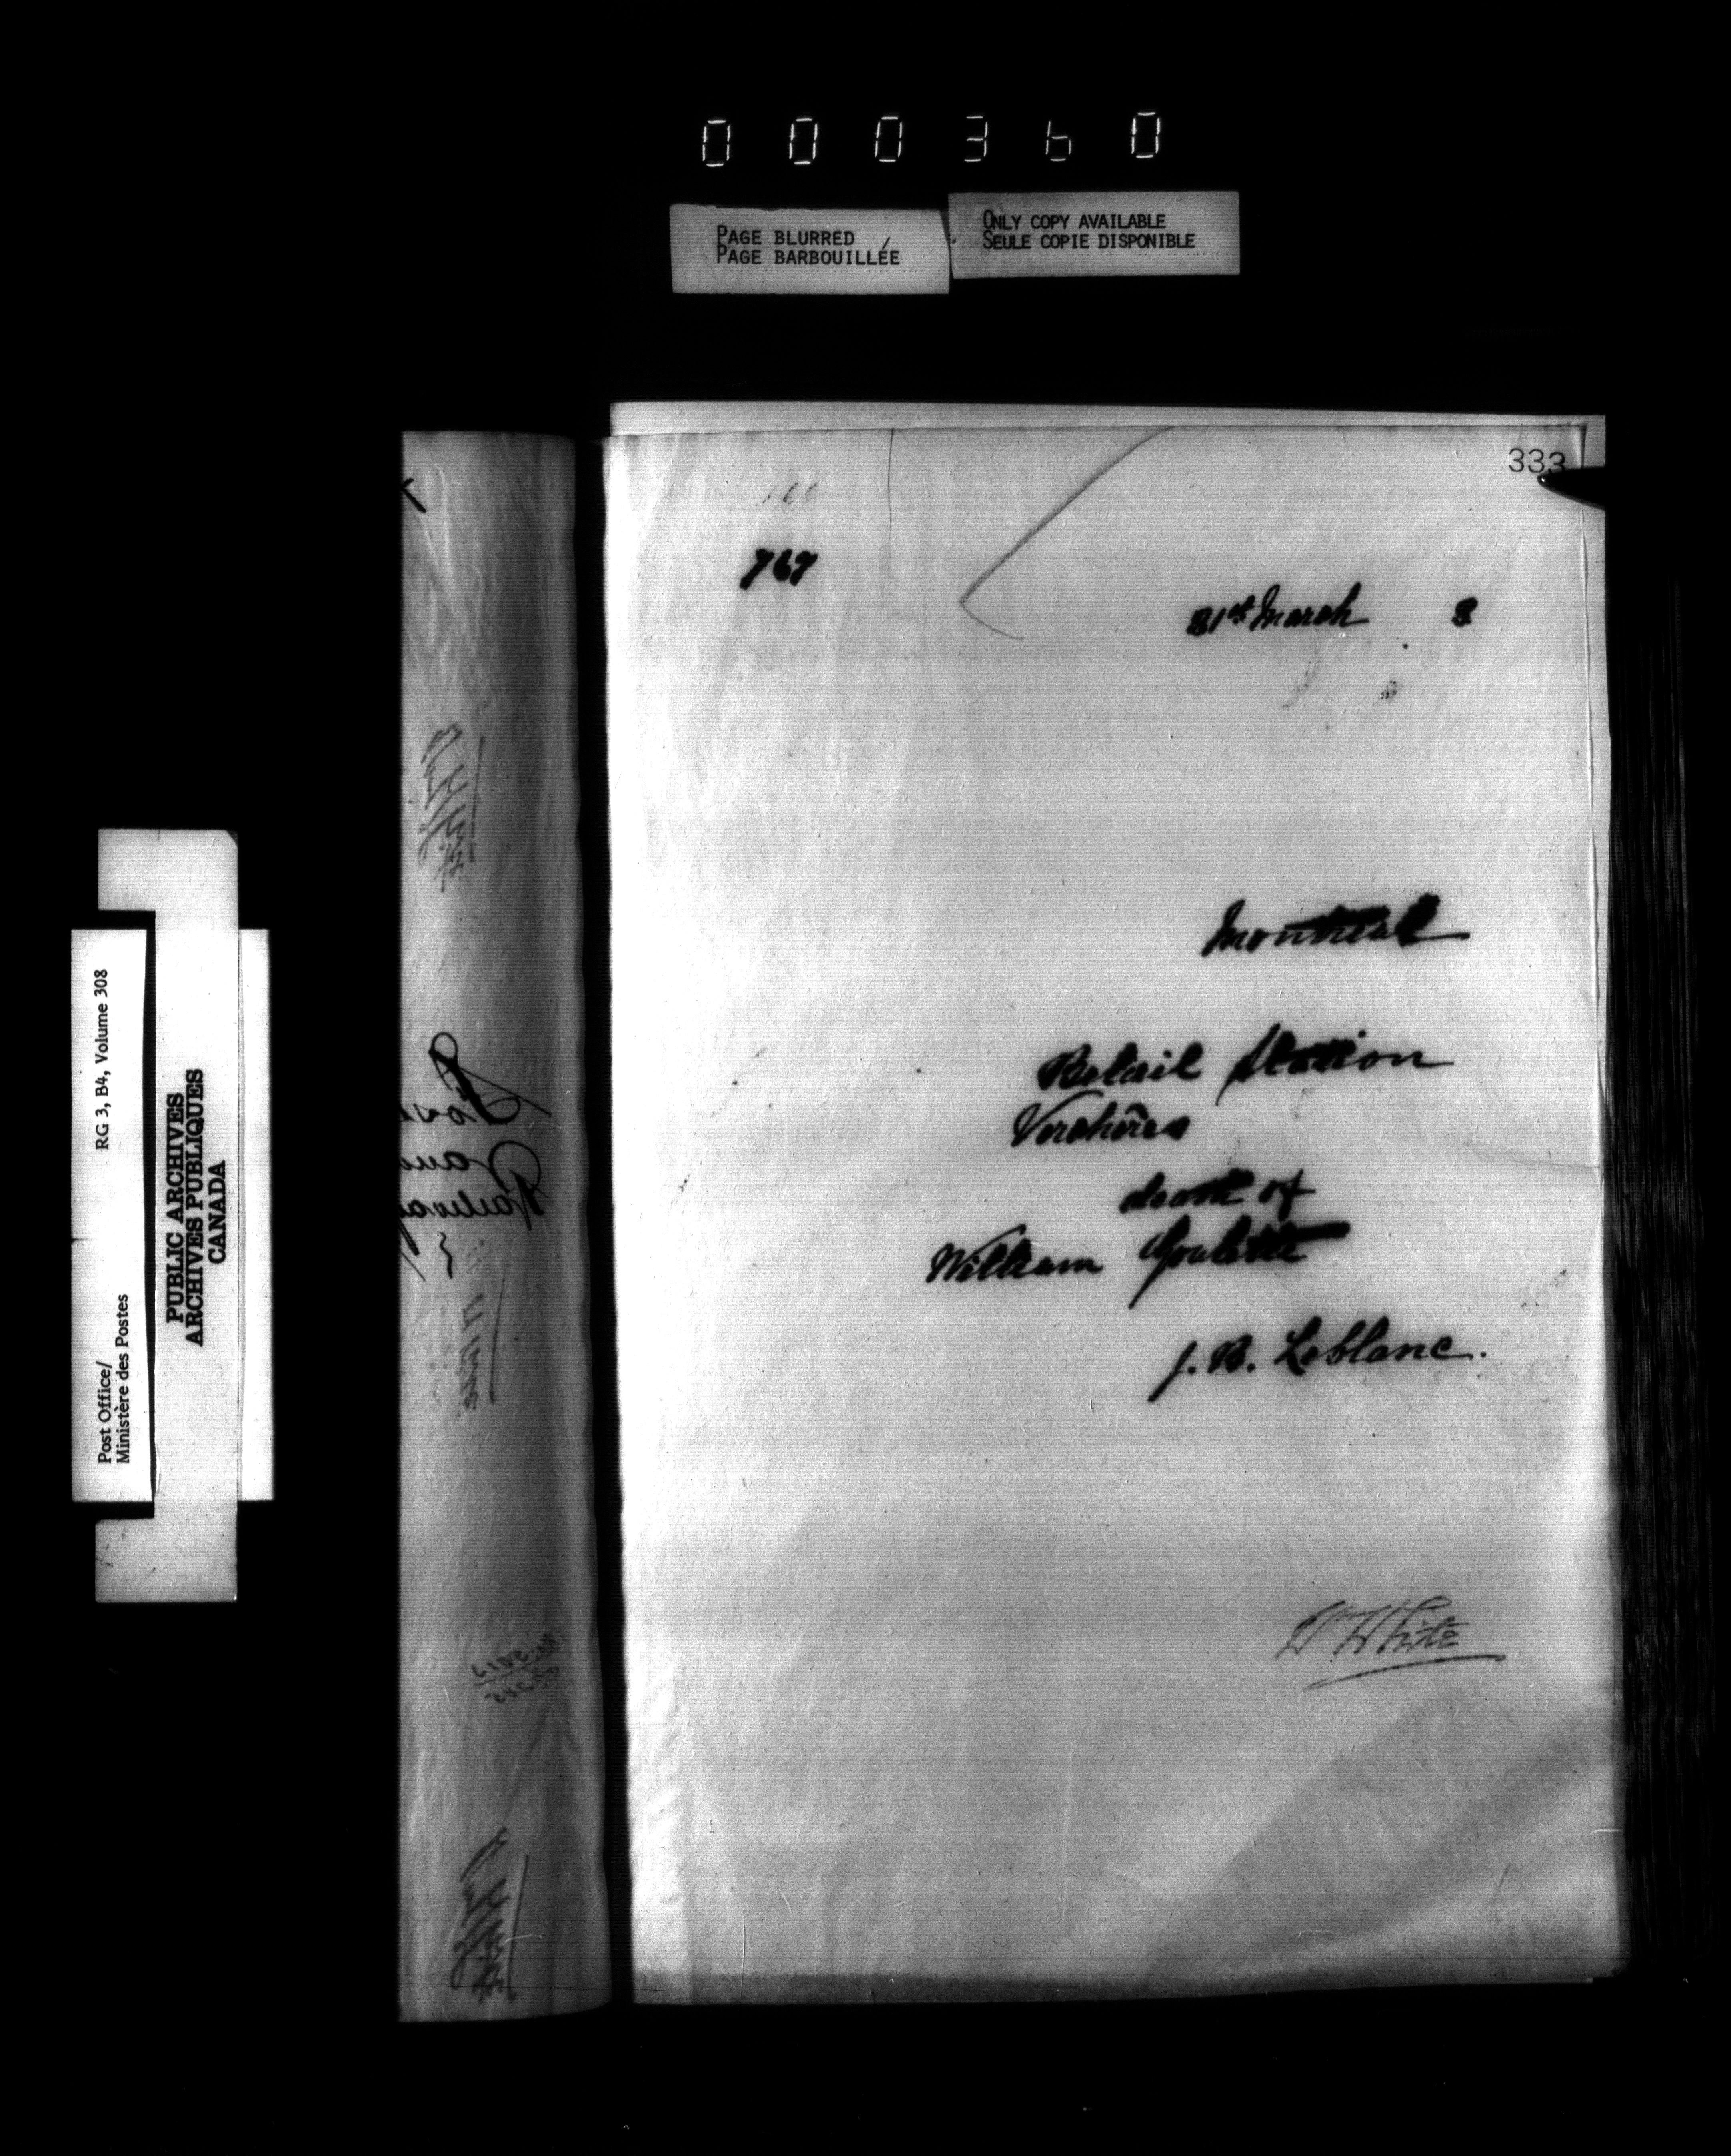 000360
PAGE BLURRED
PAGE BARBOUILLÉE
ONLY COPY AVAILABLE
SEULE COPIE DISPONIBLE
333
767
31st March 3
Montreal
Retail Station
Verchères
death of
William Goulette
J. B. Leblanc.
Wm White
Post Office/
Ministère des Postes
RG 3, B4, Volume 308
PUBLIC ARCHIVES
ARCHIVES PUBLIQUES
CANADA